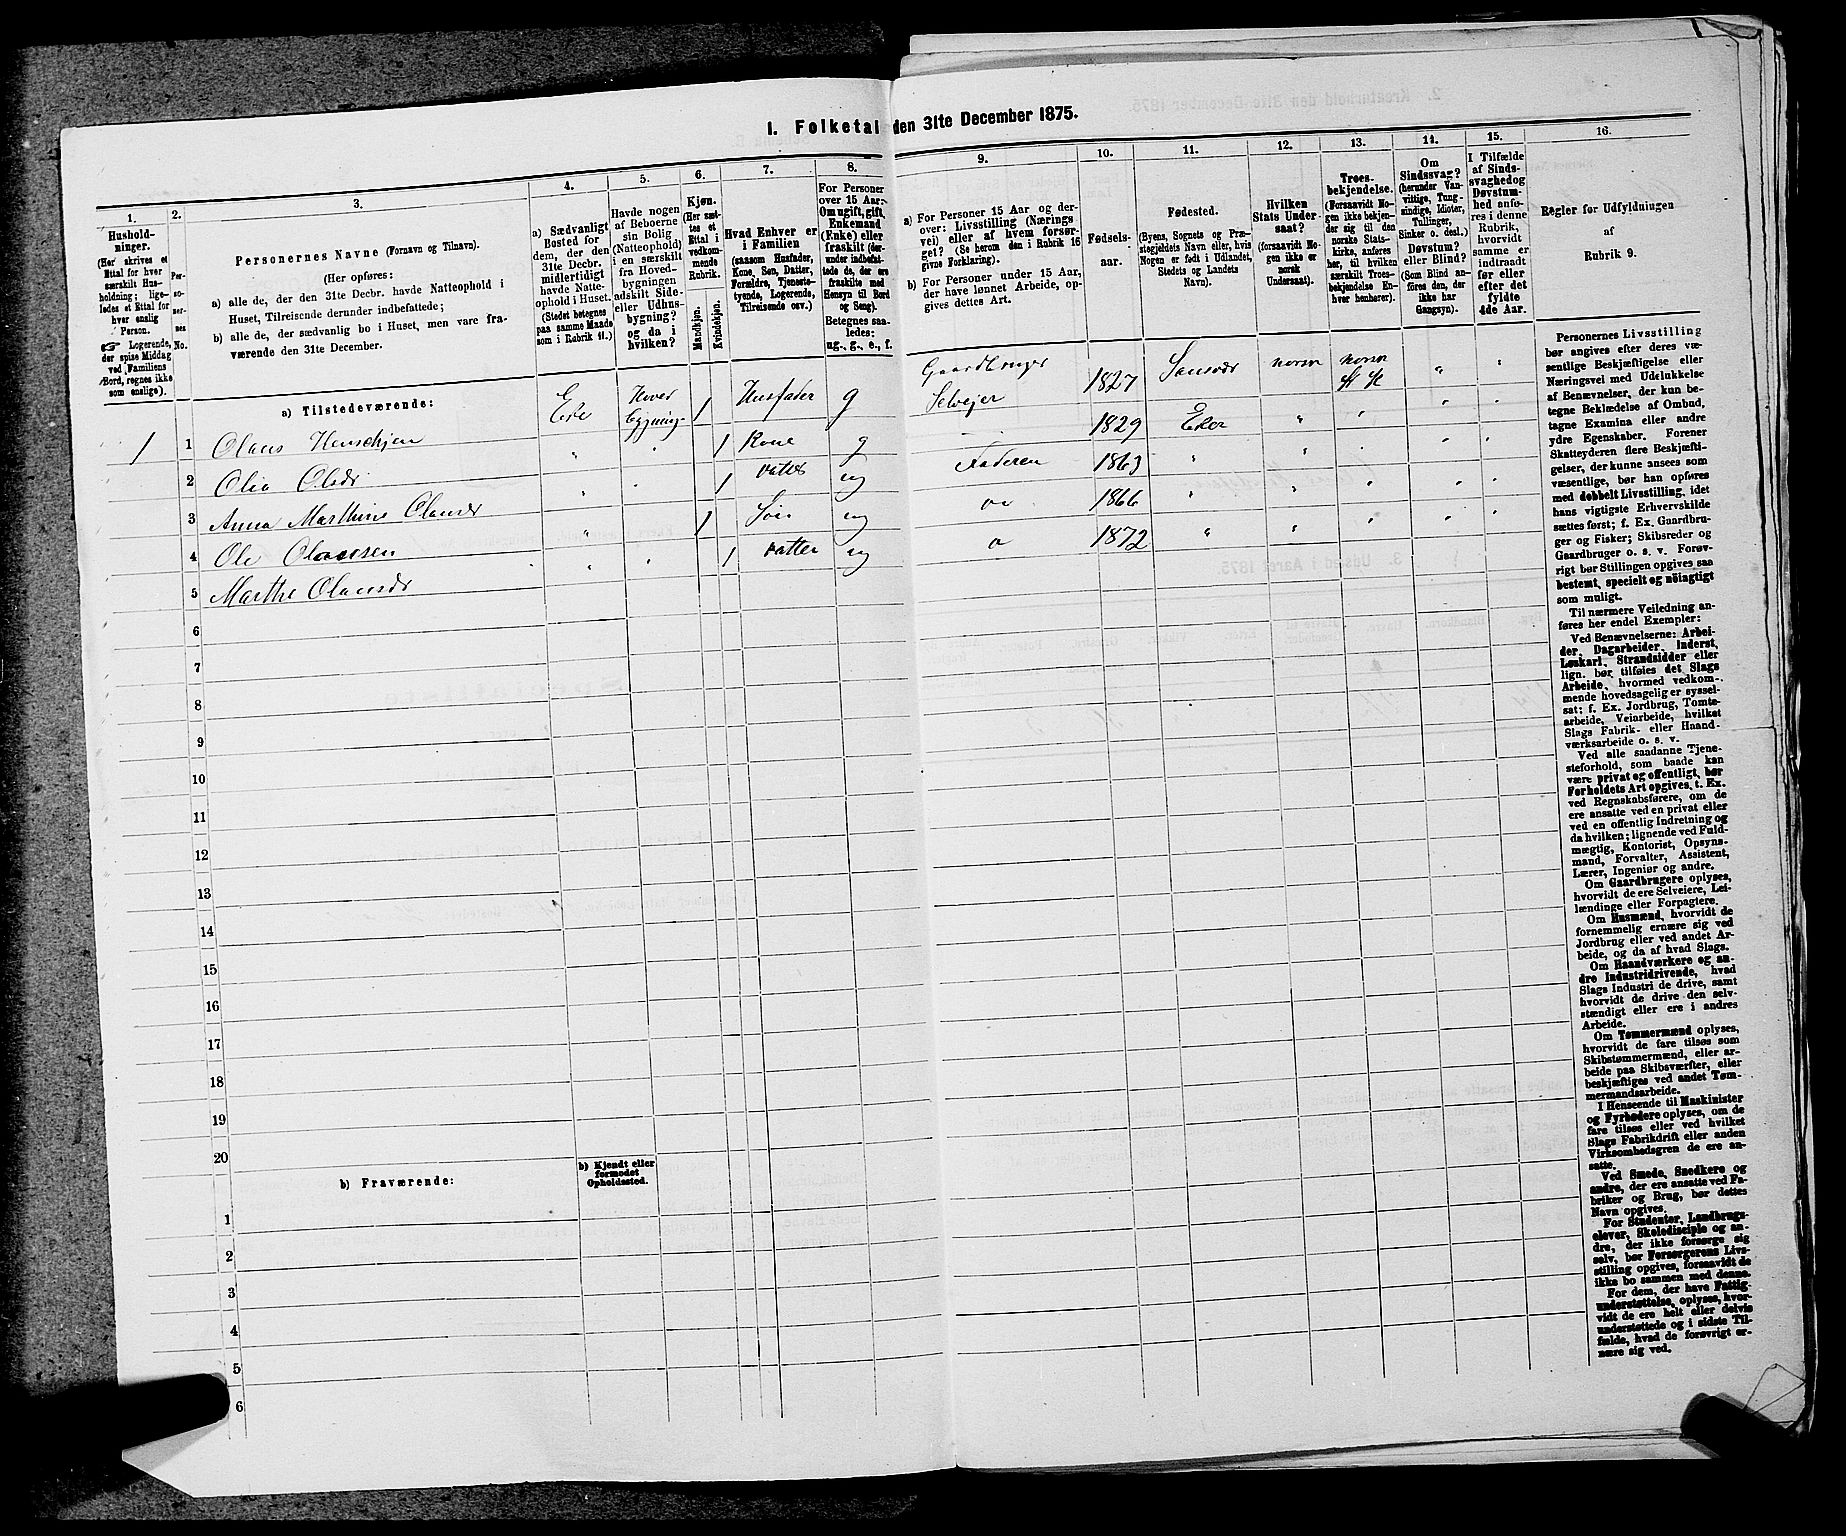 1. Folketal den 31te December 1875.
1.
2.
3.
4.
5.
6.
7.
8.
9.
10.
11.
12.
13.
14.
15.
16.
Hushold-
ninger.
(Her skrives et
Ettal for hver
særskilt Hus-
holdning; lige-
ledes et Ettal for
hver enslig
Person.
☞ Logerende,
der spise Middag
ved Familiens
Bord, regnes ikke
som enslige).
Per-
so-
ner-
nes
No.
Personernes Navne (Fornavn og Tilnavn).
(Her opføres:
a) alle de, der den 31te Decbr. havde Natteophold i
Huset, Tilreisende derunder indbefattede;
b) alle de, der sædvanlig bo i Huset, men vare fra-
værende den 31te December.
a) Sædvanligt
Bosted for
dem, der den
31te Decbr.
midlertidigt
havde Natte-
ophold i Huset.
(Stedet betegnes
paa samme Maade
som i Rubrik 11.)
Havde nogen
af Beboerne
sin Bolig
(Natteophold)
i en særskilt
fra Hoved-
bygningen
adskilt Side-
eller Udhus-
bygning?
og da i
hvilken?
Kjøn.
(Her sæt-
tes et
Ettal i
vedkom-
mende
Rubrik.
Mandkjøn.
Kvindekjøn.
Hvad Enhver er
i Familien
(saasom Husfader,
Kone, Søn, Datter,
Forældre, Tjeneste-
tyende, Logerende,
Tilreisende osv.)
For Personer
over 15 Aar:
Om ugift, gift,
Enkemand
(Enke) eller
fraskilt (der-
under indbefat-
tede de, der ere
fraskilte med
Hensyn til Bord
og Seng).
Betegnes saa-
ledes:
ug., g., e., f.
a) For Personer 15 Aar og der-
over: Livsstilling (Nærings-
vei) eller af hvem forsør-
get? (Se herom den i Rubrik 16
givne Forklaring).
b) For Personer under 15 Aar,
der have lønnet Arbeide, op-
gives dettes Art.
Fødsels-
aar.
Fødested.
(Byens, Sognets og Præ-
stegjeldets Navn eller, hvis
Nogen er født i Udlandet,
Stedets og Landets
Navn).
Hvilken
Stats Under-
saat?
(forsaavidt No-
gen ikke er
norsk
Undersaat).
Troes-
bekjendelse.
(Forsaavidt No-
gen ikke bekjen-
der sig til den
norske Stats-
kirke, anføres
her, til hvilken
særskilt Troes-
bekjendelse En-
hver henhører).
Om
Sindssvag?
(herunder Van-
vittige, Tung-
sindige, Idioter,
Tullinger,
Sinker o. desl.)
Døvstum?
eller Blind?
(Som Blind an-
føres den, der
ikke har
Gangsyn).
I Tilfælde
af Sinds-
svaghed og
Døvstum-
hed anfø-
res i denne
Rubrik,
hvorvidt
samme er
indtraadt
før eller
efter det
fyldte
4de Aar.
Regler for Udfyldningen
af
Rubrik 9.
a) Tilstedeværende:
1 1 Olaus Henschjen Eie Hoved bygning 1 Husfader g Gaardbruger Selveier 1827 Sansvær norsk norsk " "
2 Olia Olsdr " " 1 Kone g 1829 Eker " " " "
3 Anna Marthine Olausdr " " 1 Datter ug Faderen 1863 " " " " "
4 Ole Olaussen " 1 Søn ug do 1866 " " " " "
5 Marthe Olausdr " " 1 Datter ug do 1872 " " " " "
6
7
8
9
10
11
12
13
14
15
16
17
18
19
20
b) Fraværende:
b) Kjendt eller
formodet
Opholdssted.
1
2
3
4
5
6
Personernes Livsstilling
bør angives efter deres væ-
sentlige Beskjæftigelse eller
Næringsvei med Udelukkelse
af Benævnelser, der kun be-
tegne Beklædelse af Ombud,
tagne Examina eller andre
ydre Egenskaber. Forener
Skatteyderen flere Beskjæfti-
gelser, der kunne ansees som
væsentlige, bør han opføres
med dobbelt Livsstilling, idet
hans vigtigste Erhvervskilde
sættes først; f. Ex. Gaardbru-
ger og Fisker; Skibsreder og
Gaardbruger o. s. v. Forøv-
rigt bør Stillingen opgives saa
bestemt, specielt og nöiagtigt
som muligt.
Til nærmere Veiledning an-
føres her endel Exempler:
Ved Benævnelserne: Arbei-
der, Dagarbeider, Inderst,
Løskarl, Strandsidder eller
lign. bør tilføies det Slags
Arbeide, hvormed vedkom-
mende hovedsagelig er syssel-
sat; f. Ex. Jordbrug, Tomte-
arbeide, Veiarbeide, hvilket
Slags Fabrik- eller Haand-
værksarbeide o. s. v.
Ved alle saadanne Tjene-
steforhold, som baade kan
være privat og offentligt, bør
Forholdets Art opgives, t. Ex.
ved Regnskabsførere, om de
ere ansatte ved en privat eller
ved en offentlig Indretning og
da hvilken; lignende ved Fuld-
mægtig, Kontorist, Opsyns-
mand, Forvalter, Assistent,
Lærer, Ingeniør og andre.
Om Gaardbrugere oplyses,
hvorvidt de ere Selveiere, Lei-
lændinge eller Forpagtere.
Om Husmænd, hvorvidt de
fornemmelig ernære sig ved
Jordbrug eller ved andet Ar-
beide, og da af hvad Slags.
Om Haandværkere og an-
dre Industridrivende, hvad
Slags Industri de drive, samt
hvorvidt de drive den selv-
stændigt eller ere i andres
Arbeide.
Om Tømmermænd oplyses,
hvorvidt de fare tilsøs som
Skibstømmermænd, eller ar-
beide paa Skibsværfter, eller
beskjæftiges ved andet Tøm-
mermandsarbeide.
I Henseende til Maskinister
og Fyrbødere oplyses, om de
fare tilsøs eller ved hvilket
Slags Fabrikdrift eller anden
Virksomhedsgren de ere an-
satte.
Ved Smede, Snedkere og
andre, der ere ansatte ved Fa-
briker og Brug, bør dettes
Navn opgives.
For Studenter, Landbrugs-
elever, Skoledisciple og an-
dre, der ikke forsørge sig
selv, bør Forsørgerens Livs-
stilling opgives, forsaavidt de
ikke bo sammen med denne.
For dem, der have Fattig-
understøttelse, oplyses, hvor-
vidt de ere helt eller delvis
understøttede og i sidste Til-
fælde, hvad de forøvrigt er-
nære sig ved.